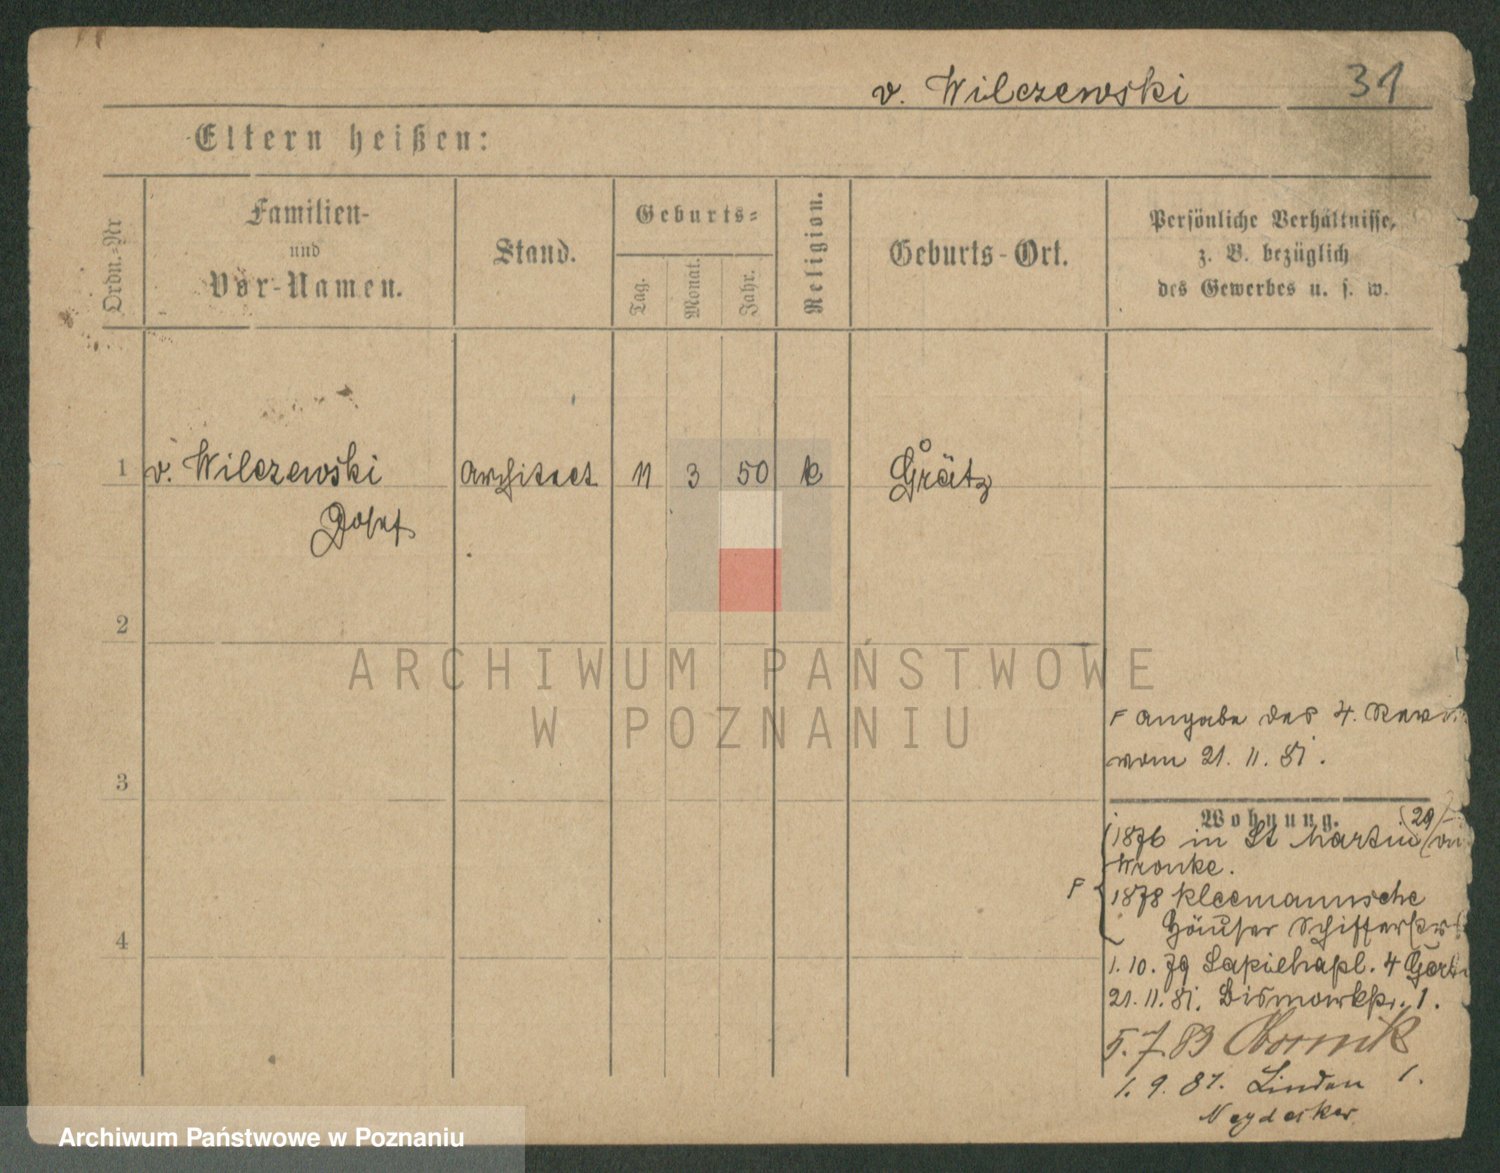 v. Wilczewski 31
Eltern heißen:
Ordn.-Nr
Familien-
und
Vor-Namen.
Stand.
Geburts-
Tag.
Monat.
Jahr.
Religion.
Geburts-Ort.
Persönliche Verhältnisse,
z. B. bezüglich
des Gewerbes u. s. w.
1 v. Wilczewski Architect 11 3 50 k Grätz
Josef
2
3
4
ARCHIWUM PAŃSTWOWE
W POZNANIU
F Angabe des 4. Revi
vom 21. 11. 81.
Wohnung.
1876 in St Martin (29
Wronke.
F 1878 Kleemannsche
Häuser Schifferstr
1. 10. 79 Sapiehapl. 4
21. 11. 81. Bismarkstr. 1.
5. 7. 83 Obornik
1. 9. 87. Linden 1.
Neydecker
Archiwum Państwowe w Poznaniu